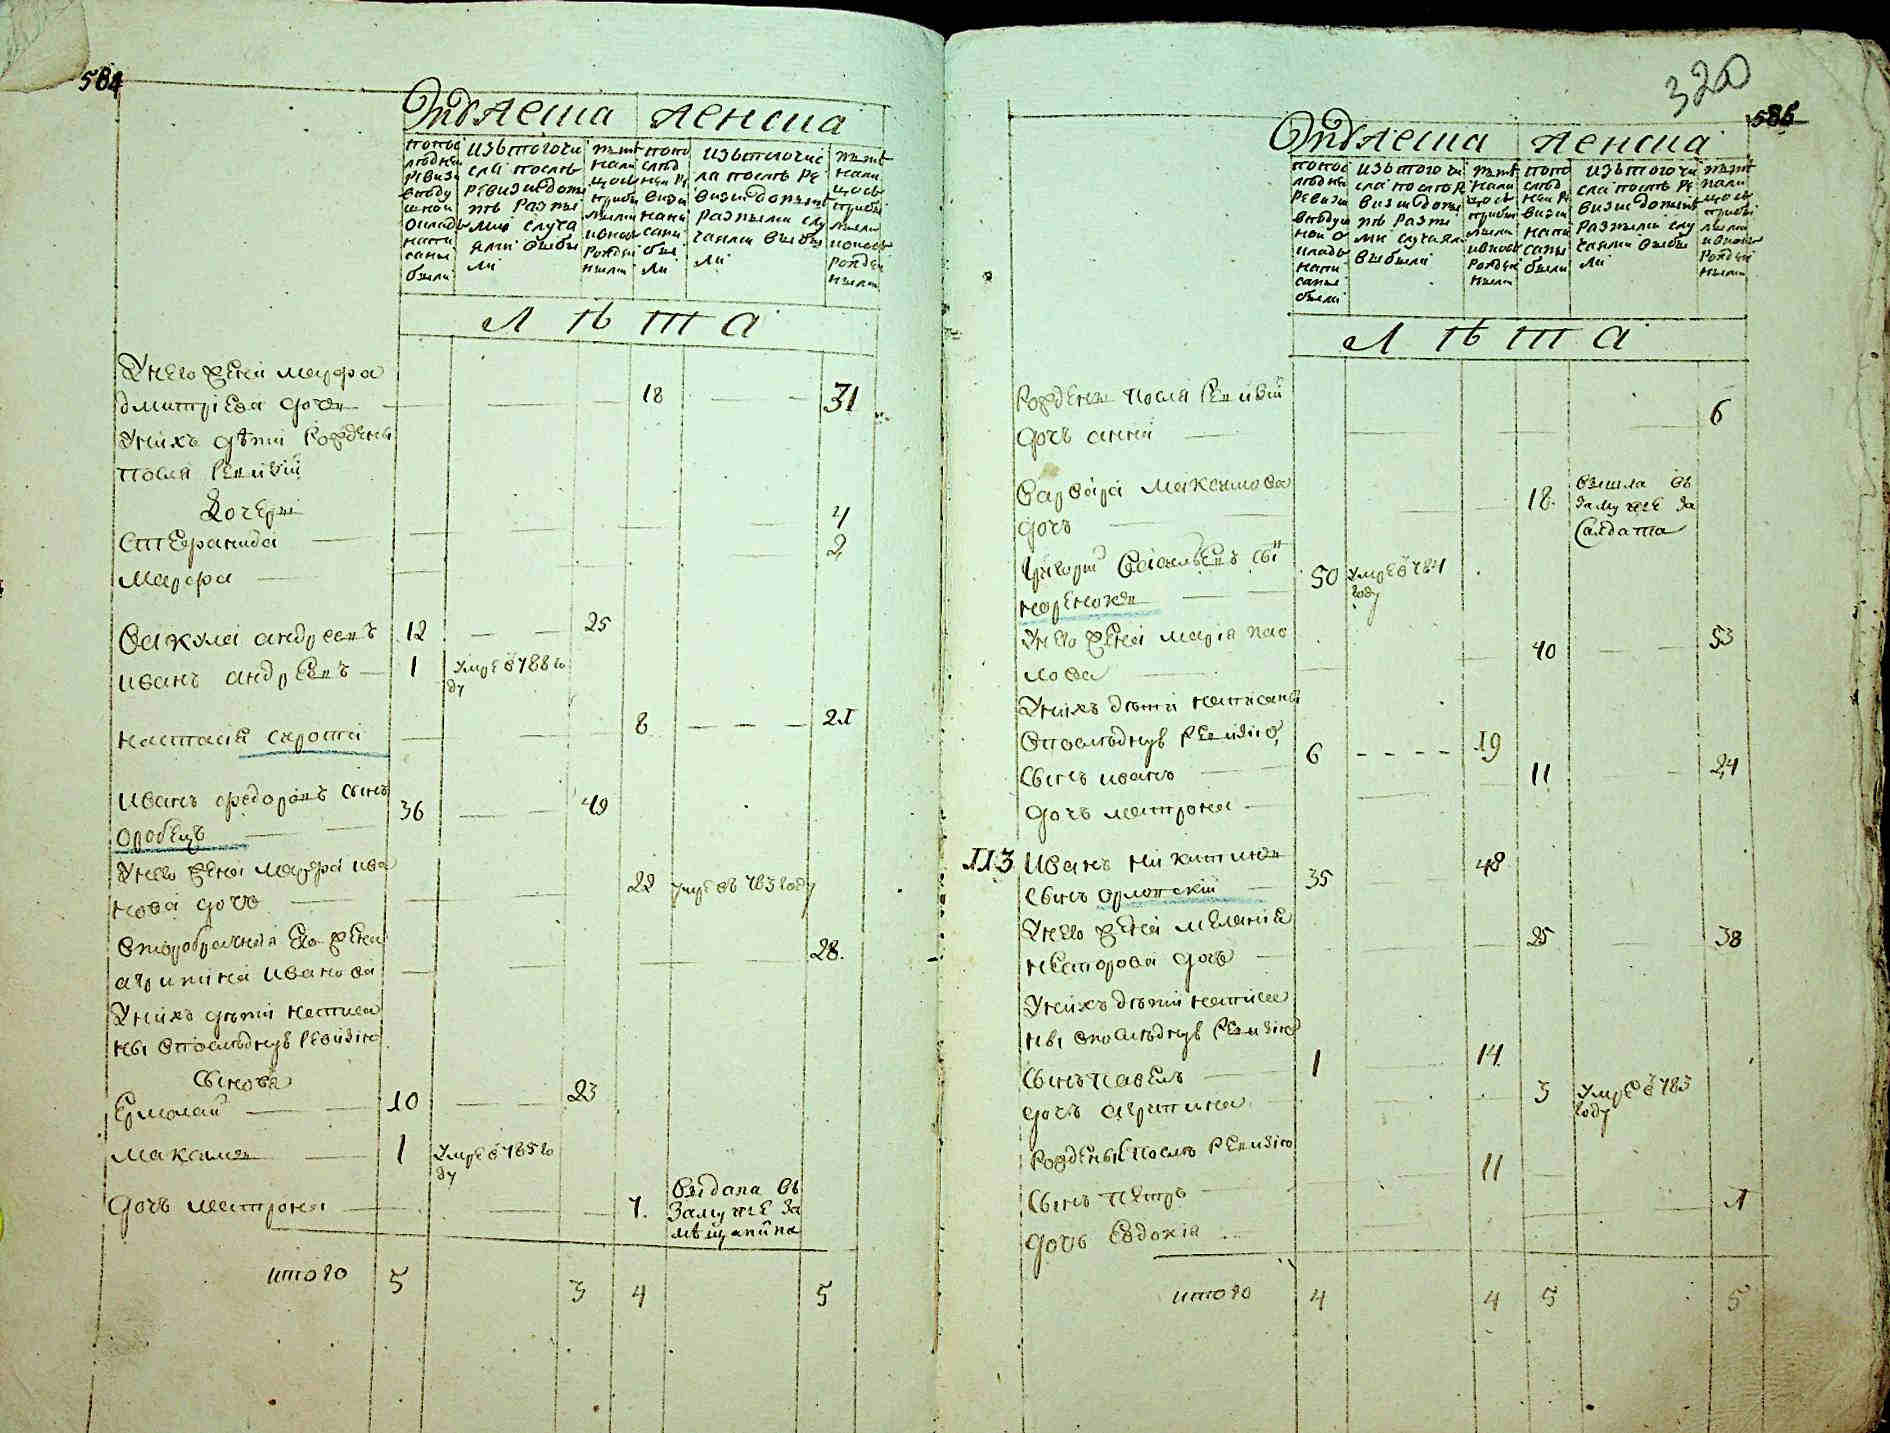 584
лета женска
по последней ревизии в подушной оклад написаны были
из того числа после ревизии до ныне разными случаями выбыли
ныне на лицо с прибылыми и вновь рожденными
по последней ревизии написаны были
из того числа после ревизии до ныне разными случаями выбыли
ныне на лицо с прибылыми и вновь рожденными
ЛѢТА
У него жена мавра
дмитриева дочь — — — 18 — — 31
У них дѣти рождены
после ревизии
дочери
Степанида — — — 4
Мавра — — — 2
Вакула андреевъ 12 — — 25
иванъ андреевъ — 1 умре в 788 го
ду
настасия сирота — — — 8 — — — 21
иванъ федоровъ сынъ
оробецъ — — 36 — — 49
У него жена мавра ива
нова дочь — — — 22 умре въ 783 году
второбрачная его жена
агрипина иванова — — — — 28.
У нихъ дѣти написа
ны впоследнуѣ ревизию
Сыновя
Ермолай — — 10 — — 23
максимъ — 1 умре в 785 го
ду
дочь матрона — — — 7. выдана въ
замуже за
мѣщанина
итого 5 3 4 5
320
585
лета женска
по последней ревизии в подушной оклад написаны были
из того числа после ревизии до ныне разными случаями выбыли
ныне на лицо с прибылыми и вновь рожденными
по последней ревизии написаны были
из того числа после ревизии до ныне разными случаями выбыли
ныне на лицо с прибылыми и вновь рожденными
ЛѢТА
рождена после ревизии
дочь анна — — — — 6
варвара максимова
дочь — — — 18. вышла въ
замуже за
салдата
григорий васильевъ сынъ
50 умре в 784
году
У него жена мария пав
лова — — — 40 — — 53
У нихъ дѣти написаны
впоследнуѣ ревизию
Сынъ иванъ — 6 - - - - 19
дочь матрона — — — 11 — — 24
113 иванъ никитинъ
Сынъ орловский — 35 — 48
У него жена мелания
несторова дочь — — — 25 — 38
У нихъ дѣти написа
ны впоследнуѣ ревизию
Сынъ павелъ — 1 — 14
дочь агрипина — — — 3 умре в 783
году
рождены после ревизию
Сынъ петръ — — 11 —
дочь евдокия — — — 1
итого 4 4 5 5